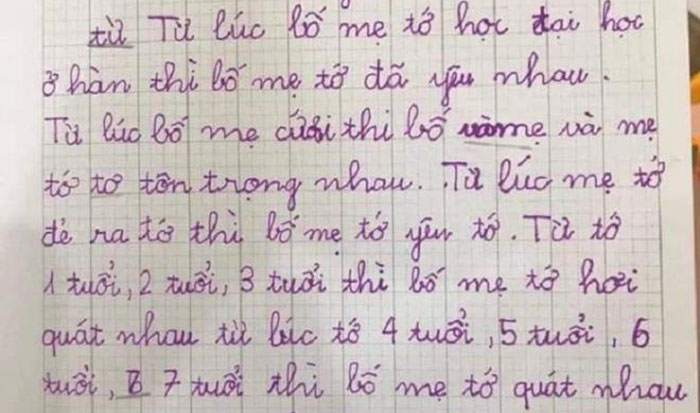 từ Từ lúc bố mẹ tớ học đại học
ở hàn thì bố mẹ tớ đã yêu nhau.
Từ lúc bố mẹ cưới thì bố vàmẹ và mẹ
tớ tơ tôn trọng nhau. Từ lúc mẹ tớ
đẻ ra tớ thì bố mẹ tớ yêu tớ. Từ tớ
1 tuổi, 2 tuổi, 3 tuổi thì bố mẹ tớ hơi
quát nhau từ lúc tớ 4 tuổi, 5 tuổi, 6
tuổi, 7 tuổi thì bố mẹ tớ quát nhau